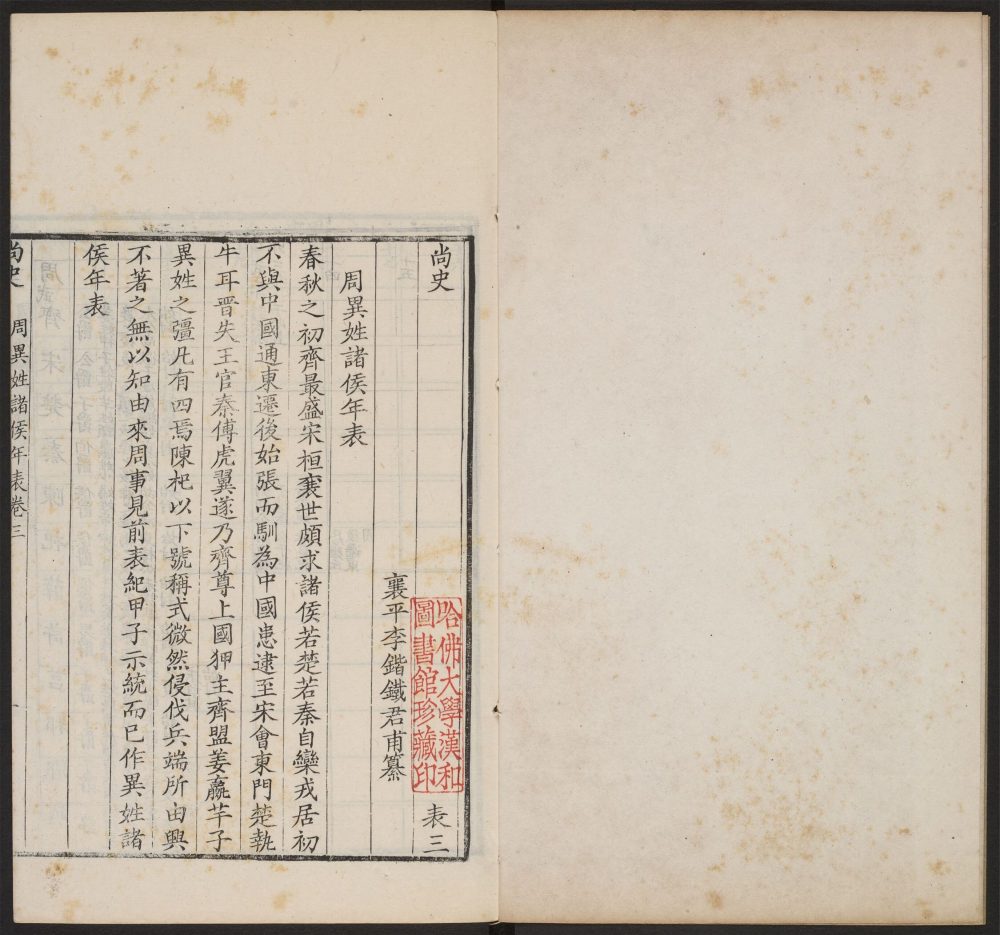 尚史
表三
襄平李鍇鐵君甫纂
哈佛大學漢和
圖書館珍藏印
周異姓諸侯年表
春秋之初齊最盛宋桓襄世頗求諸侯若楚若秦自欒戎居初
不與中國通東遷後始張而馴為中國患逮至宋會東門楚執
牛耳晋失王官秦傅虎翼遂乃齊尊上國狎主齊盟姜嬴芊子
異姓之彊凡有四焉陳杞以下號稱式微然侵伐兵端所由興
不著之無以知由來周事見前表紀甲子示統而已作異姓諸
侯年表
尚史
周異姓諸侯年表卷三